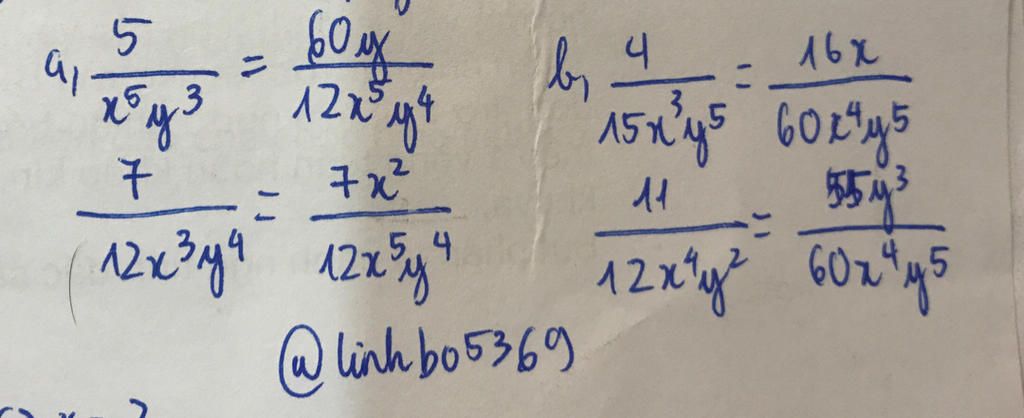 a, 5/x⁵y³ = 60y/12x⁵y⁴
7/12x³y⁴ = 7x²/12x⁵y⁴
b, 4/15x³y⁵ = 16x/60x⁴y⁵
11/12x⁴y² = 55y³/60x⁴y⁵
@linhbo5369